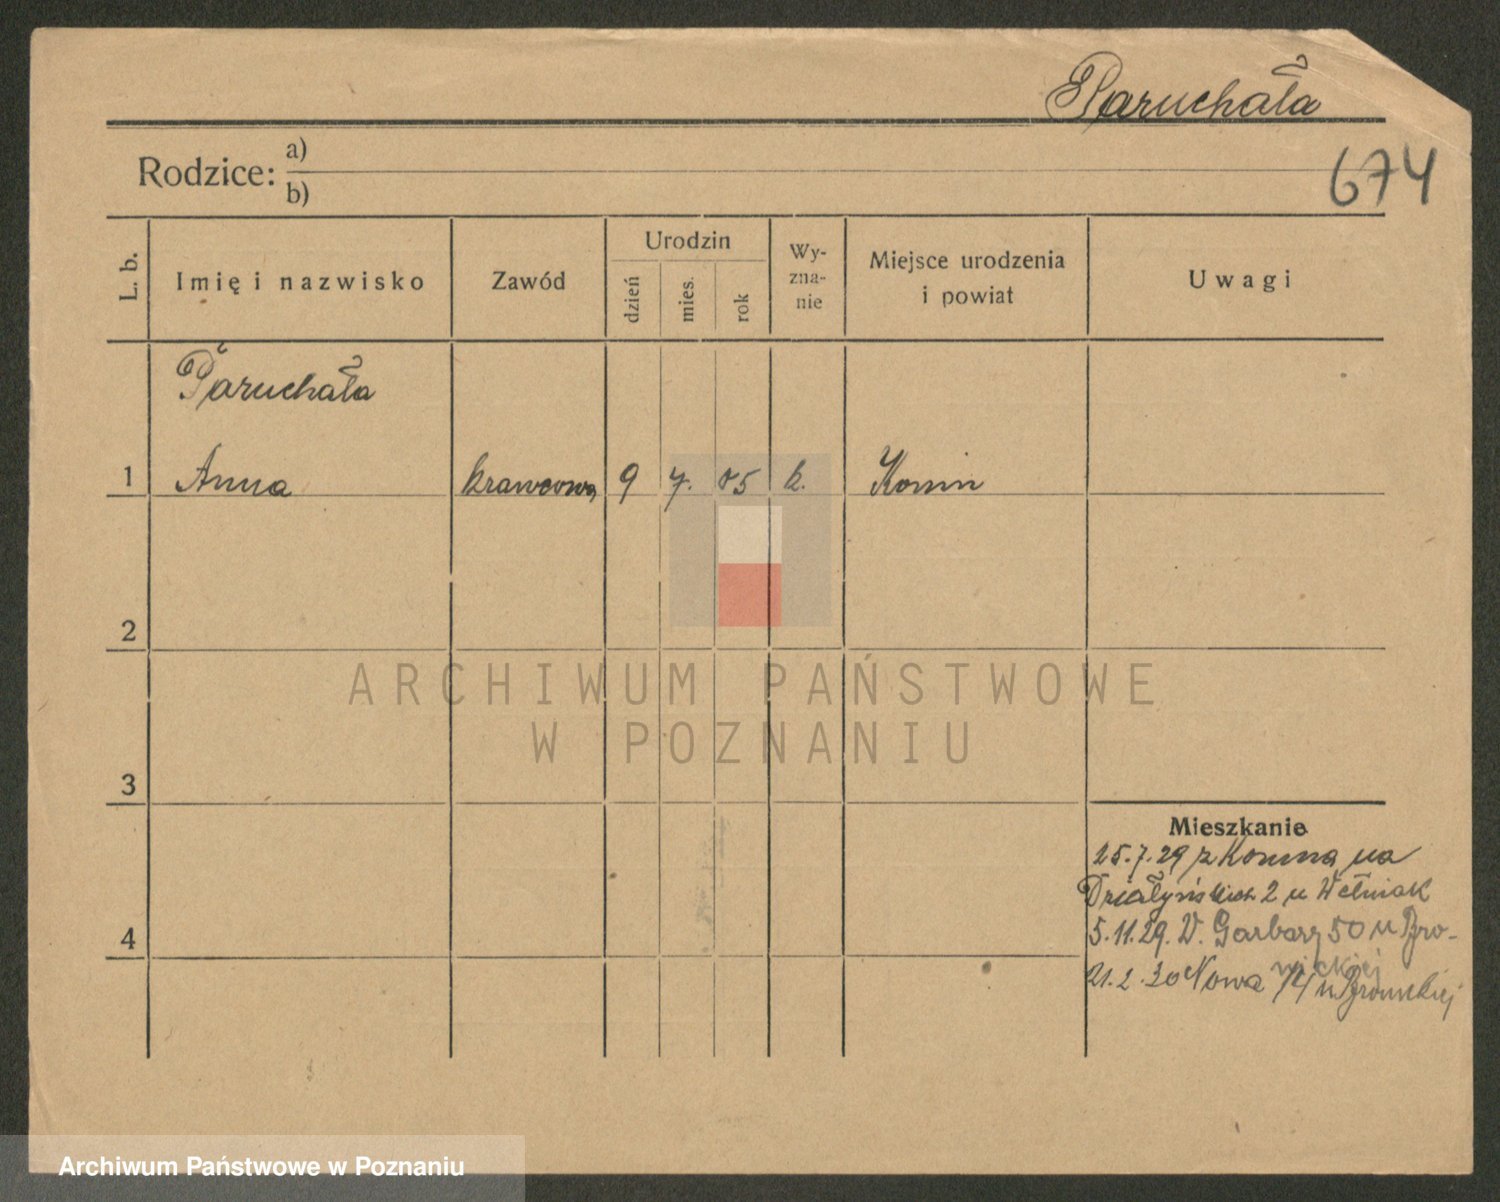 Paruchała
674
Rodzice: a)
b)
L. b.
Imię i nazwisko
Zawód
Urodzin
dzień
mies.
rok
Wy-
zna-
nie
Miejsce urodzenia
i powiat
Uwagi
Paruchała
1 Anna krawcowa 9 7. 05 k. Konin
2
3
4
Mieszkanie
25.7.29 z Konina na
Działyńskich 2 u Wełniak
5.11.29. W. Garbary 50 u Bro-
nickiej
21.2.30 Nowa u
ARCHIWUM PAŃSTWOWE
W POZNANIU
Archiwum Państwowe w Poznaniu